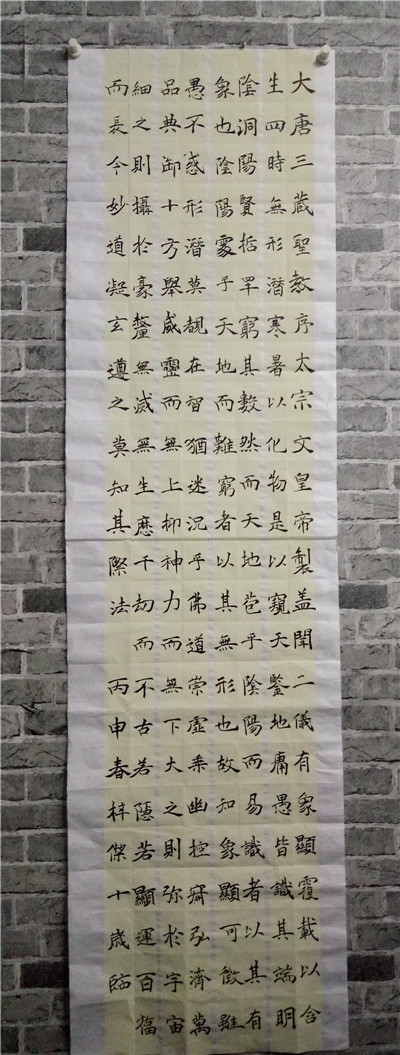 大唐三蔵聖教序太宗文皇帝製盖聞二儀有象顯覆載以含
生四時無形潛寒暑以化物是以窺天鑒地庸愚皆識其端明
陰洞陽賢哲罕窮其數然而天地苞乎陰陽而易識者以其有
象也陰陽處乎天地而難窮者以其無形也故知象顯可徵雖
愚不惑形潛莫覩在智猶迷況乎佛道崇虛乘幽控寂弘濟萬
品典御十方舉威靈而無上抑神力而無下大之則弥於宇宙
細之則攝於豪釐無滅無生歷千劫而不古若隱若顯運百福
而長今妙道凝玄遵之莫知其際法 丙申春梓傑十歲臨